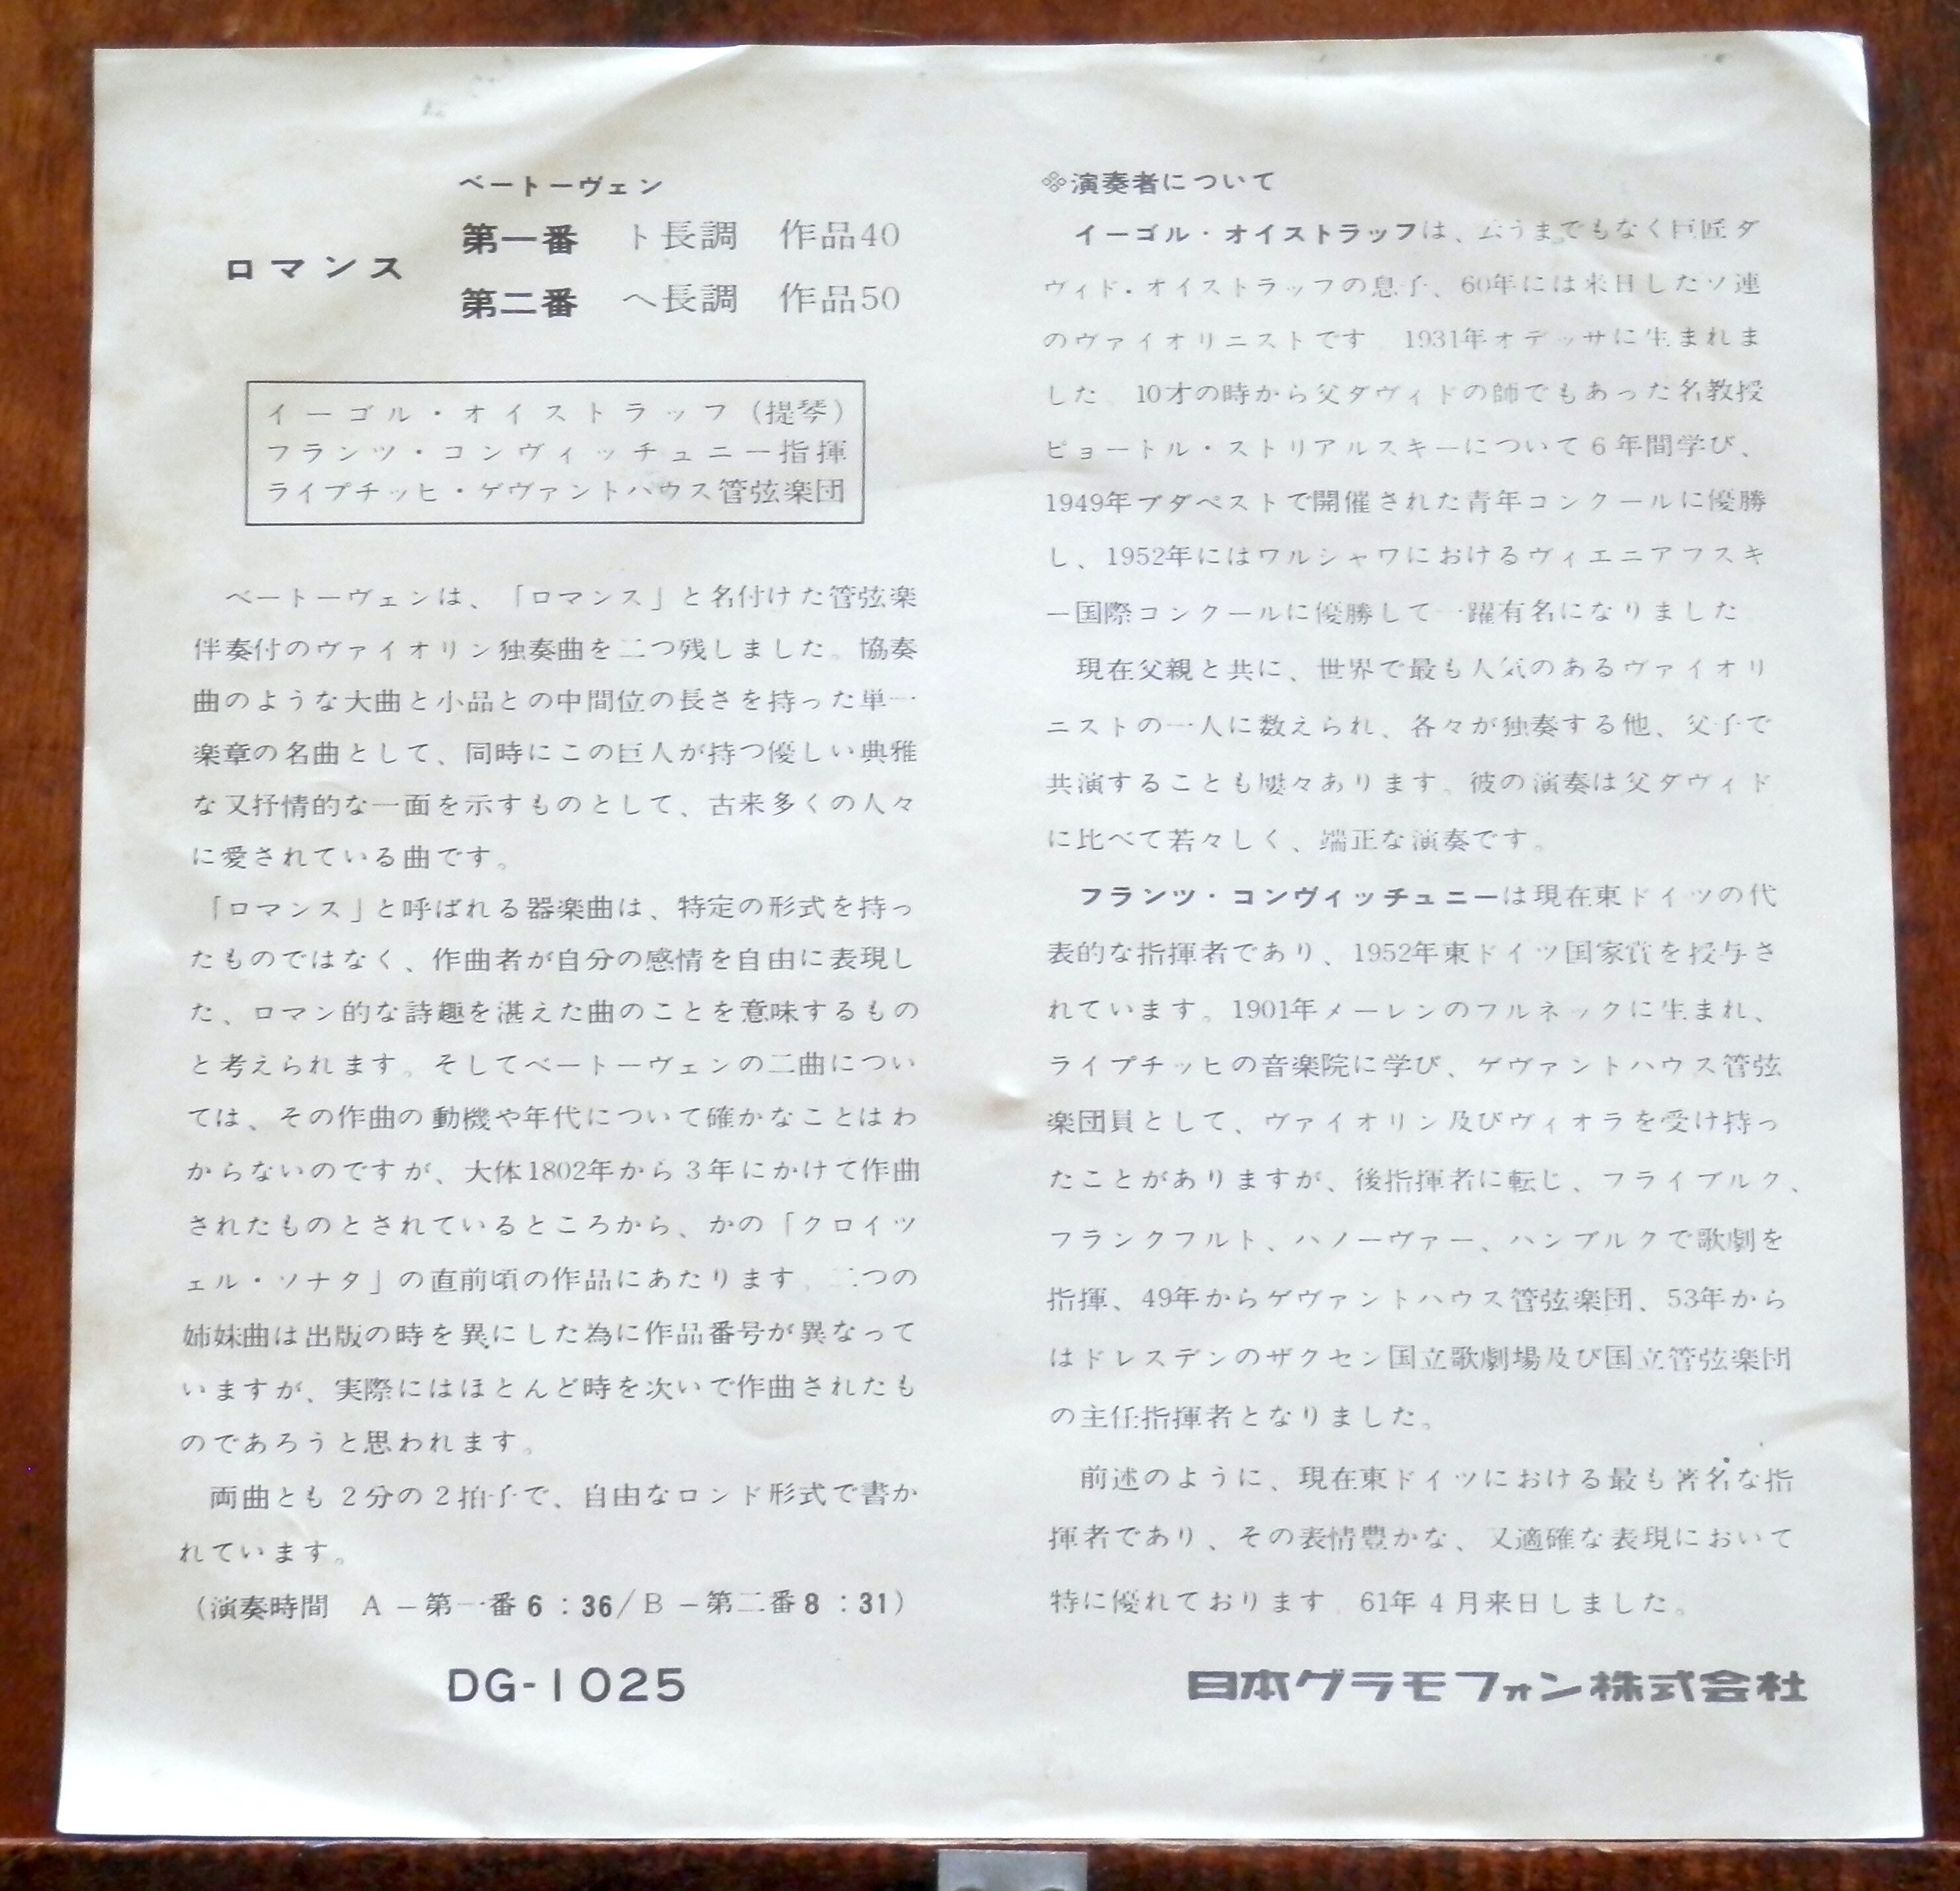 ベートーヴェン
ロマンス
第一番 ト長調 作品40
第二番 ヘ長調 作品50
イーゴル・オイストラッフ(提琴)
フランツ・コンヴィッチュニー指揮
ライプチッヒ・ゲヴァントハウス管弦楽団
ベートーヴェンは、「ロマンス」と名付けた管弦楽
伴奏付のヴァイオリン独奏曲を二つ残しました。協奏
曲のような大曲と小品との中間位の長さを持った単一
楽章の名曲として、同時にこの巨人が持つ優しい典雅
な又抒情的な一面を示すものとして、古来多くの人々
に愛されている曲です。
「ロマンス」と呼ばれる器楽曲は、特定の形式を持っ
たものではなく、作曲者が自分の感情を自由に表現し
た、ロマン的な詩趣を湛えた曲のことを意味するもの
と考えられます。そしてベートーヴェンの二曲につい
ては、その作曲の動機や年代について確かなことはわ
からないのですが、大体1802年から3年にかけて作曲
されたものとされているところから、かの「クロイツ
ェル・ソナタ」の直前頃の作品にあたります。二つの
姉妹曲は出版の時を異にした為に作品番号が異なって
いますが、実際にはほとんど時を次いで作曲されたも
のであろうと思われます。
両曲とも2分の2拍子で、自由なロンド形式で書か
れています。
(演奏時間 A－第一番6：36/B－第二番8：31)
DG-1025
※演奏者について
イーゴル・オイストラッフは、云うまでもなく巨匠ダ
ヴィド・オイストラッフの息子、60年には来日したソ連
のヴァイオリニストです。1931年オデッサに生まれま
した。10才の時から父ダヴィドの師でもあった名教授
ピョートル・ストリアルスキーについて6年間学び、
1949年ブダペストで開催された青年コンクールに優勝
し、1952年にはワルシャワにおけるヴィエニアフスキ
ー国際コンクールに優勝して一躍有名になりました
現在父親と共に、世界で最も人気のあるヴァイオリ
ニストの一人に数えられ、各々が独奏する他、父子で
共演することも屡々あります。彼の演奏は父ダヴィド
に比べて若々しく、端正な演奏です。
フランツ・コンヴィッチュニーは現在東ドイツの代
表的な指揮者であり、1952年東ドイツ国家賞を授与さ
れています。1901年メーレンのフルネックに生まれ、
ライプチッヒの音楽院に学び、ゲヴァントハウス管弦
楽団員として、ヴァイオリン及びヴィオラを受け持っ
たことがありますが、後指揮者に転じ、フライブルク、
フランクフルト、ハノーヴァー、ハンブルクで歌劇を
指揮、49年からゲヴァントハウス管弦楽団、53年から
はドレスデンのザクセン国立歌劇場及び国立管弦楽団
の主任指揮者となりました。
前述のように、現在東ドイツにおける最も著名な指
揮者であり、その表情豊かな、又適確な表現において
特に優れております。61年4月来日しました。
日本グラモフォン株式会社